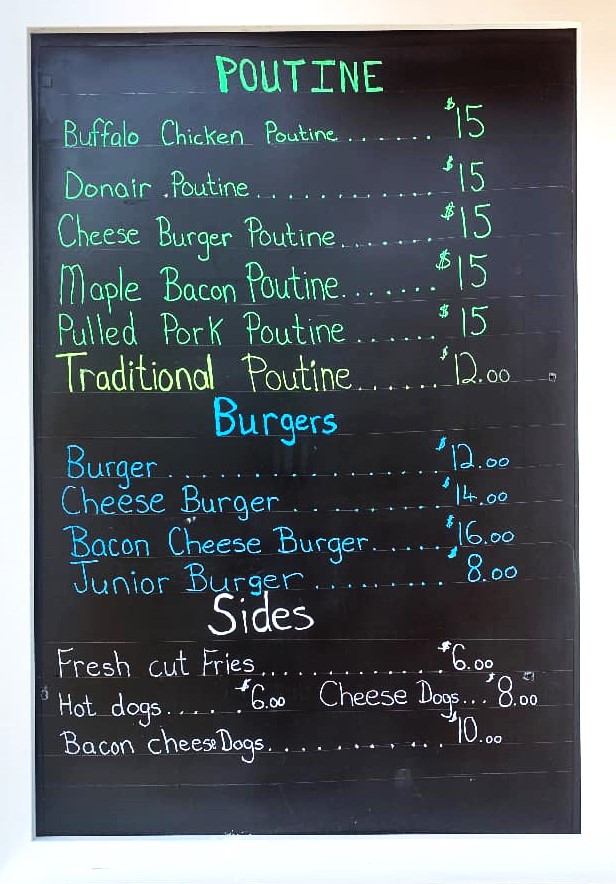 POUTINE
Buffalo Chicken Poutine....... $15
Donair Poutine............. $15
Cheese Burger Poutine....... $15
Maple Bacon Poutine....... $15
Pulled Pork Poutine...... $15
Traditional Poutine...... $12.00
Burgers
Burger.................. $12.00
Cheese Burger.......... $14.00
Bacon Cheese Burger..... $16.00
Junior Burger.......... $8.00
Sides
Fresh cut Fries............. $6.00
Hot dogs...... $6.00 Cheese Dogs... $8.00
Bacon cheese Dogs............ $10.00